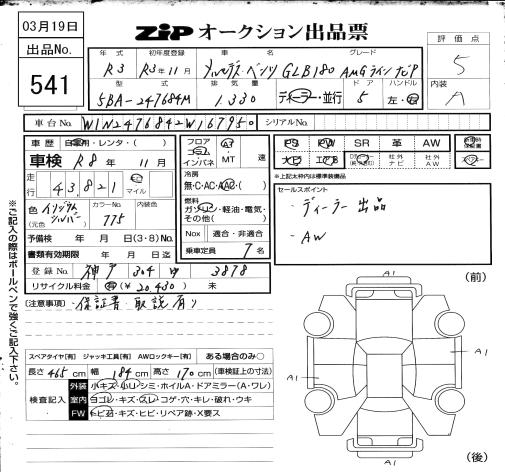 03月19日
ZiP オークション出品票
出品No.
541
評価点
5
内装
A
年式 初年度登録 車名 グレード
R3 R3年11月 メルセデス・ベンツ GLB180 AMGライン ナビP
型式 排気量 ドア ハンドル
5BA-247684M 1.330 ディーラー・並行 5 左・右
車台No. W1N2476842W167950 シリアルNo.
車歴 自家用・レンタ・( )
車検 R8年 11月
走行 43,821 km マイル
色 イリジウムシルバー (元色) カラーNo. 775 内装色
予備検 年 月 日(3・8)No.
書類有効期限 年 月 日迄
登録No. 神戸 304 ゆ 3878
リサイクル料金 済(¥20,430) 未
フロア コラム インパネ AT MT 速
冷房 無・C・AC・AAC・( )
燃料 ガソリン・軽油・電気・その他( )
Nox 適合・非適合
乗車定員 7名
PS PW SR 革 AW
ナビ エアB 社外ナビ 社外AW
※上記太枠内は標準装備品
セールスポイント
・ディーラー出品
・AW
[注意事項]・保証書・取説有り
スペアタイヤ[有] ジャッキ工具[有] AWロックキー[有] ある場合のみ○
長さ 465cm 幅 184cm 高さ 170cm (車検証の寸法)
検査記入
外装 小キズ・小凹・シミ・ホイルA・ドアミラー(A・ワレ)
室内 ヨゴレ・キズ・スレ・コゲ・穴・キレ・破れ・ウキ
FW トビ石・キズ・ヒビ・リペア跡・X要ス
※ご記入の際はボールペンで強くご記入下さい。
(前)
A1
A1
A1
A1
(後)